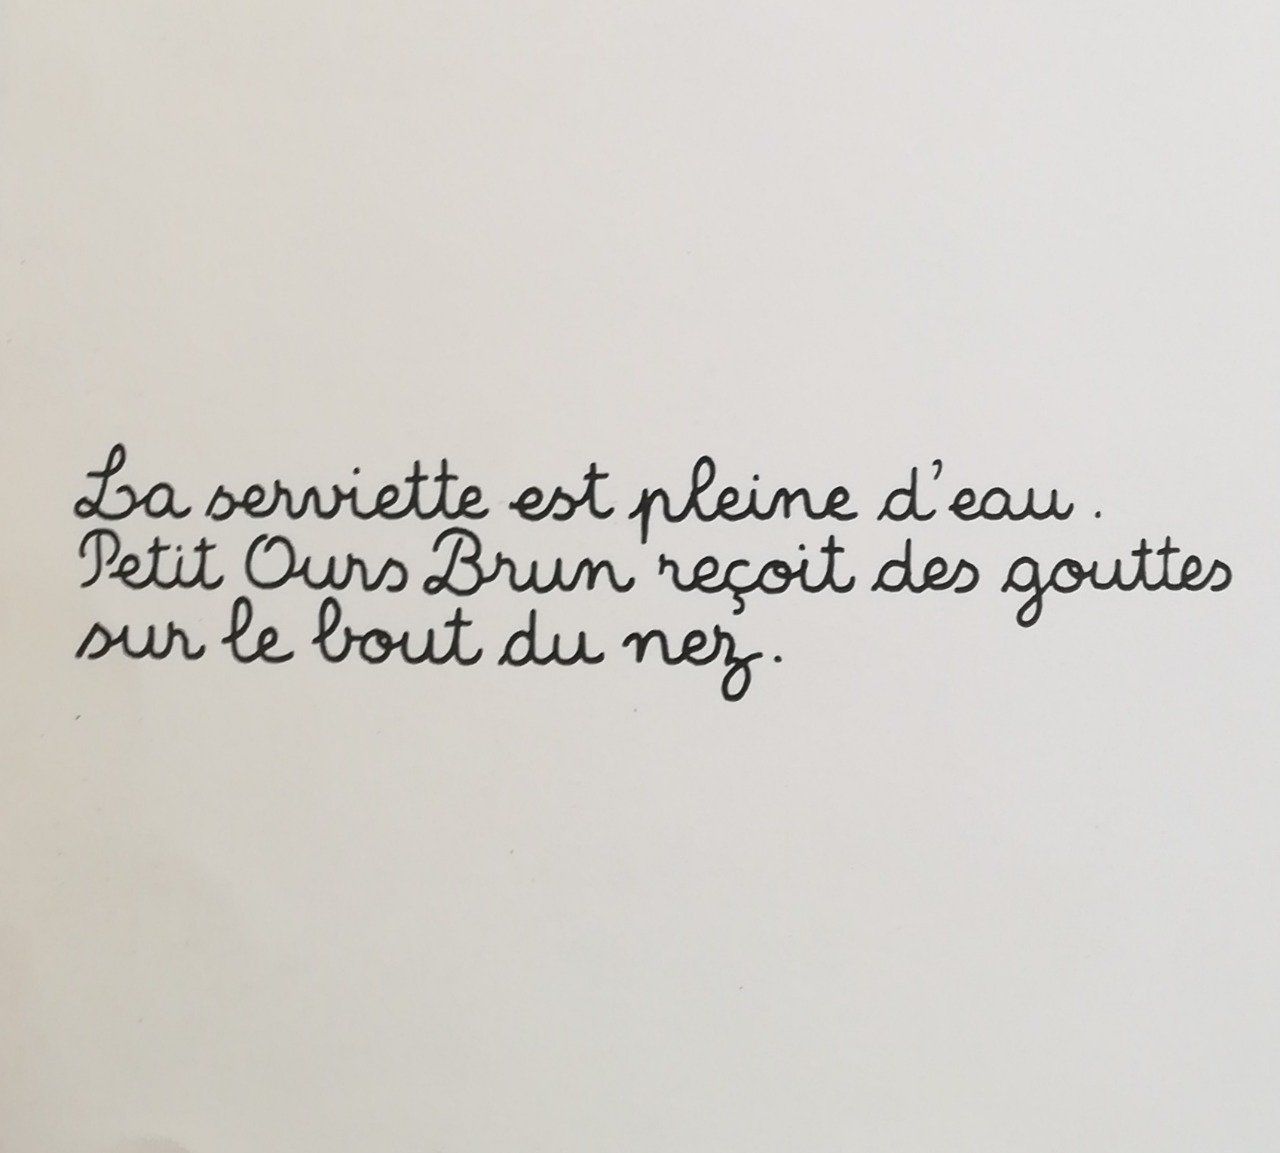 La serviette est pleine d'eau.
Petit Ours Brun reçoit des gouttes
sur le bout du nez.